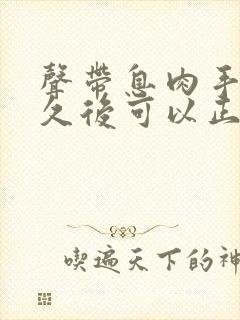 聲帶息肉手
久後可以正
喫遍天下的神